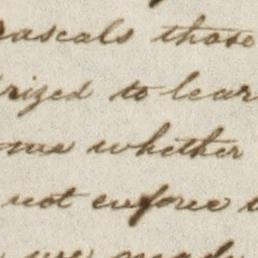 rascals those
rized to lear
me whether
not enforce